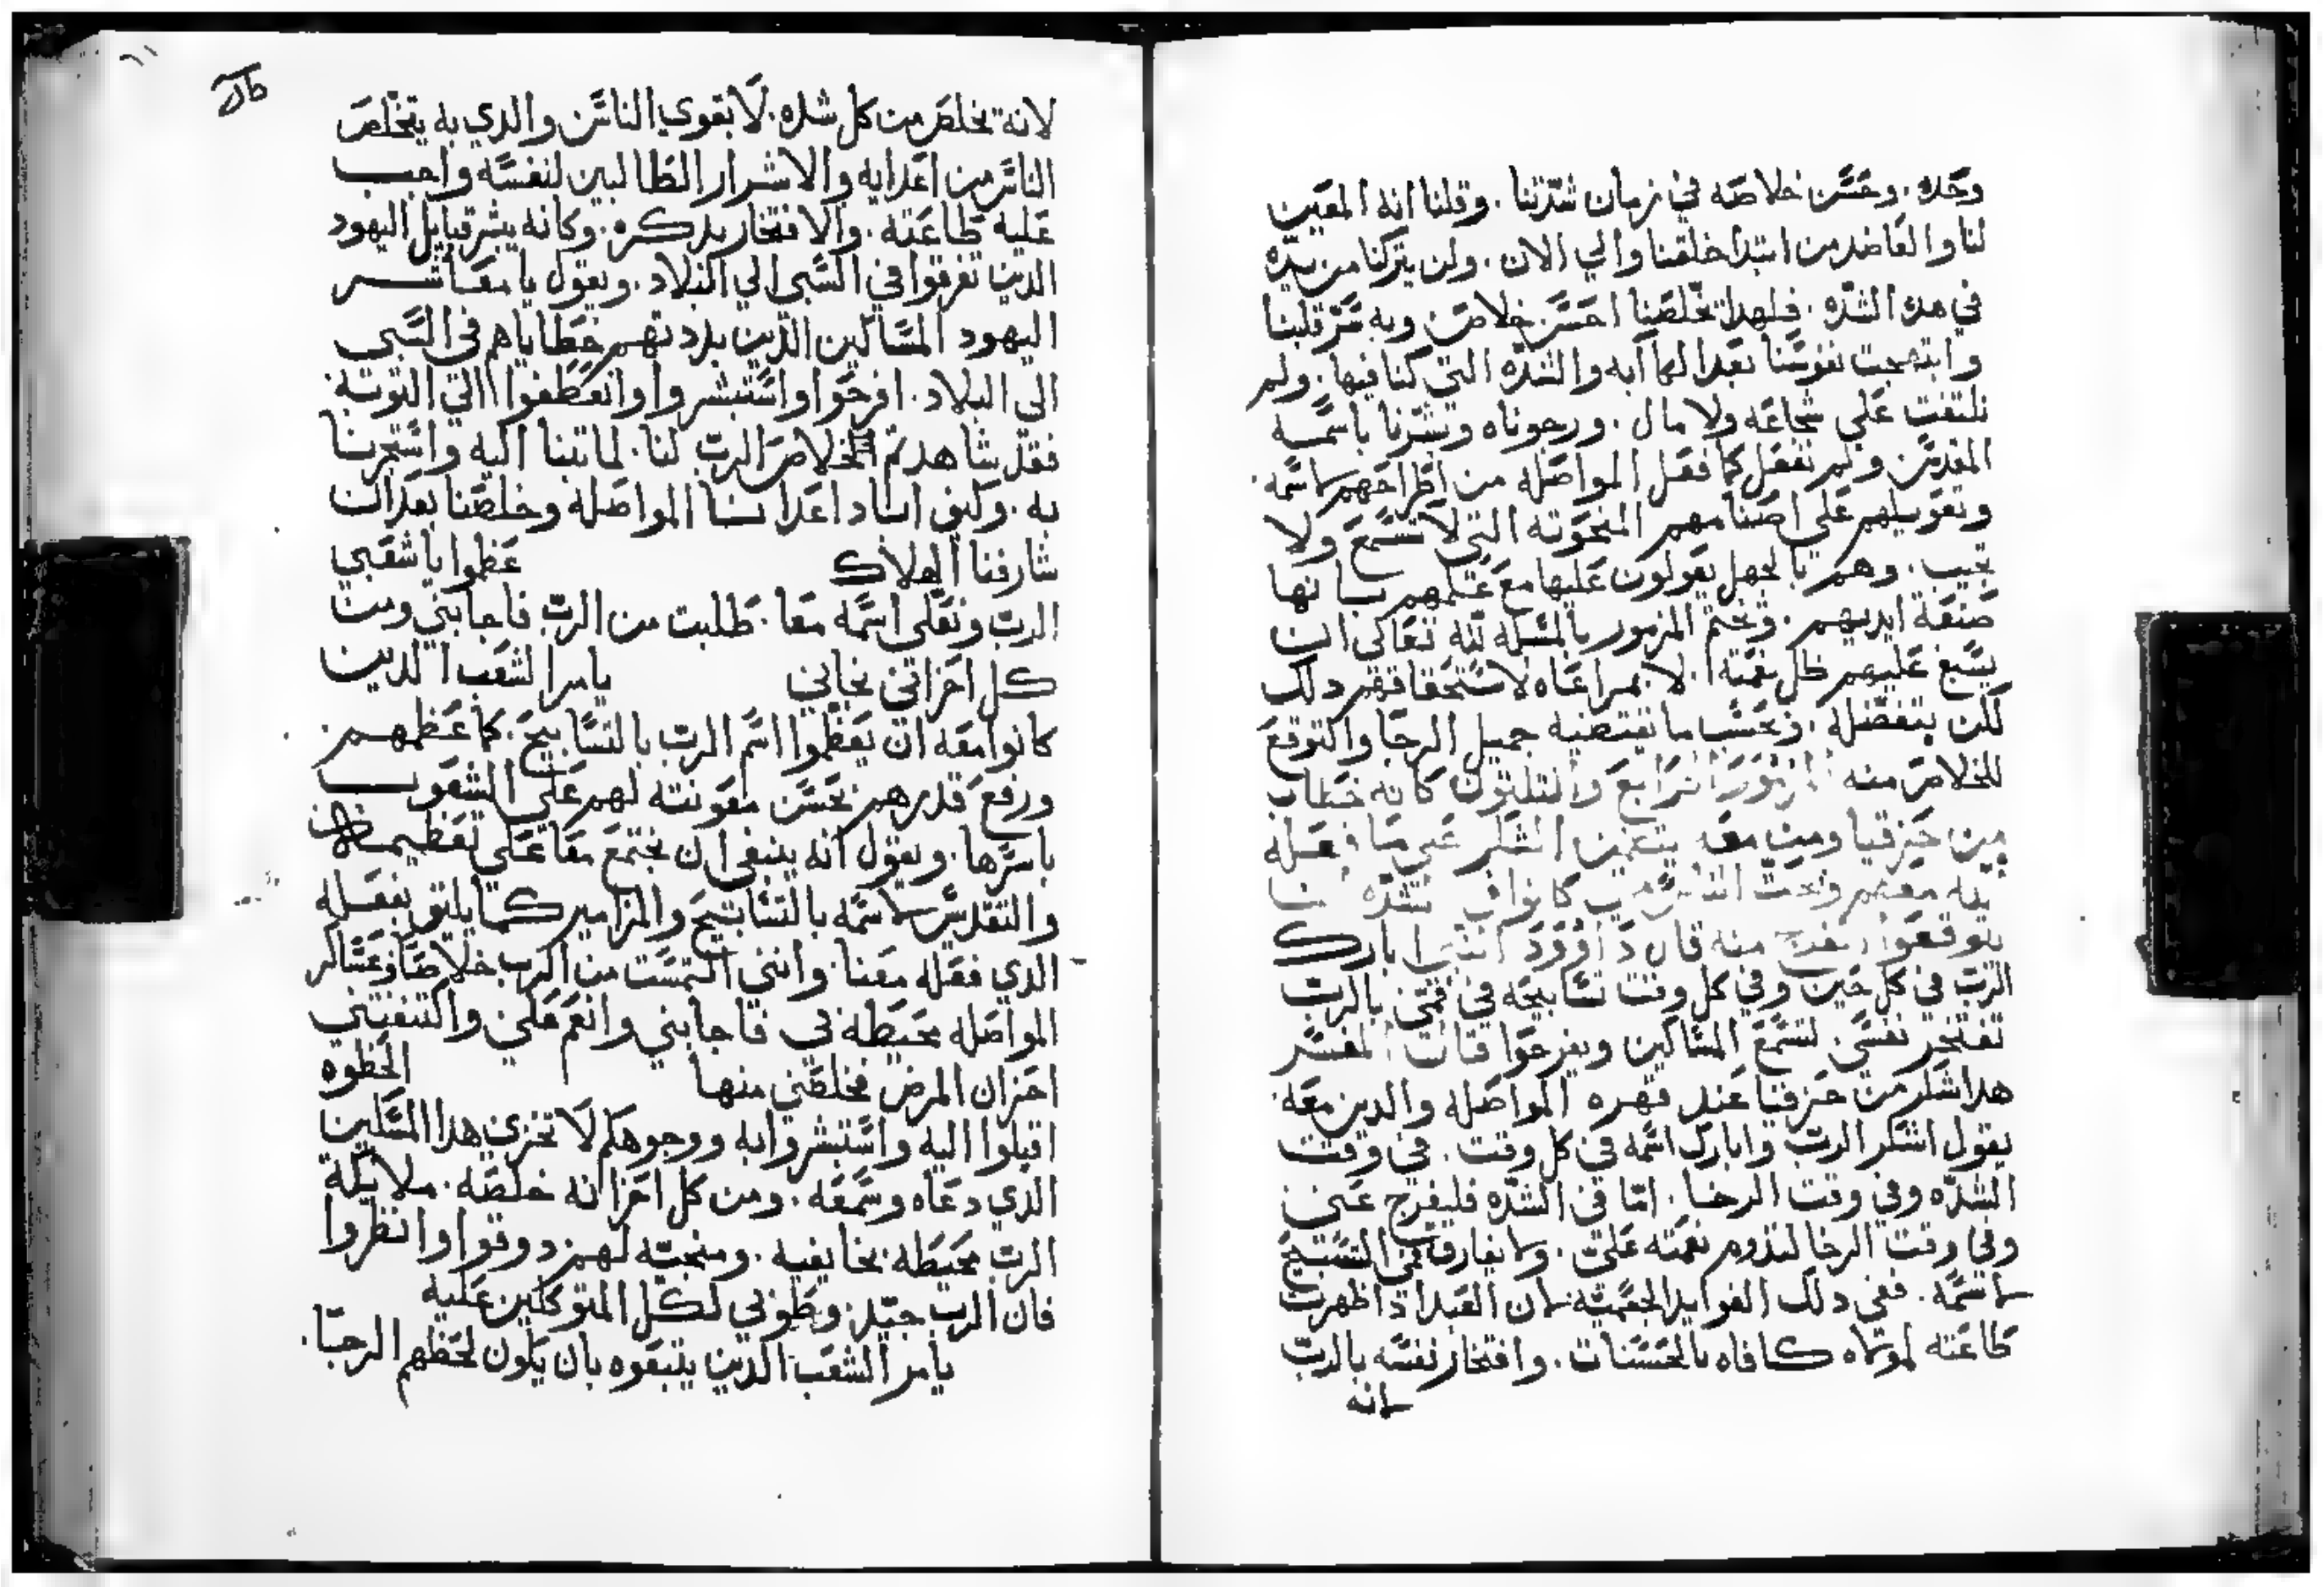 وحده. وحسن خلاصه في زمان شدتنا. وقلنا انه المعين
لنا والعاضد من ابتدا خلقتنا والي الان. ولن يتركنا من يده
في هده الشده. فلهدا تخلصنا احسن خلاص وبه سر قلبنا
وابتهجت نفوسنا بعد الكاابه والشده التي كنا فيها. ولم
نلتفت علي شجاعه ولا مال. ورجوناه وتشرنا باسمه
المقدس ولم نفعل كما فعل المواصله من اطراحهم لاسمه.
وتعويلهم علي اصنامهم المنحوته التي لا تسمع ولا
تجيب. وهم بالجهل يعولون عليها مع علمهم بانها
صنعة ايديهم. وختم المزمور بالمسله لله تعالي ان
يسبغ عليهم ظل نعمته. لا بمراعاه لاستحقاقهم دلك
لكن بتفضله. وبحسب ما تقتضيه جميل الرجا والتوقع
للخلاص منه المزمور الرابع والتلتون كانه خطاب
من حزقيا ومن معه يتضمن الشكر علي ما فعله
لله معهم وبحث الناس متي كانوا في شده
يتوقعوا الفرج منه قال داوود النبي ابارك
الرب في كل حين وفي كل وقت تسابيحه في فمي بالرب
تفتخر نفسي. لتسمع المساكين ويفرحوا قال المفسر
هدا شكر من حزقيا عند قهره المواصله والدين معه.
يقول اشكر الرب وابارك اسمه في كل وقت. في وقت
الشده وفي وقت الرخا. اما في الشده فليفرج عني
وفي وقت الرخا لتدوم نعمته علي. ولا يفارق فمي التسبيح
لاسمه. ففي دلك الفوايد الجميه لان العبد ادا ظهرت
طاعته لمولاه كافاه بالحسنات. وافتخار نفسه بالرب
لانه
لانه تخلص من كل شده. لا بقوي الناس والدي به يتخلص
الناس من اعدايه والاشرار الطالبين لنفسه واجب
عليه طاعته. والافتخار بدكره. وكانه يبشر قبايل اليهود
الدين تفرقوا في السبي الي البلاد. ويقول يا معاشر
اليهود المساكين الدين بددتهم خطاياهم في السبي
الي البلاد. افرحوا واستبشروا وانعطفوا الي التوبة
فقد شاهدتم الخلاص الرب لنا. لما تبنا اليه واستجرنا
به. وكيف اباد اعدانا المواصله وخلصنا بعد ان
شارفنا الهلاك عظموا يا شعبي
الرب ونعلي اسمه معا. طلبت من الرب فاجابني ومن
كل احزاني نجاني يامر الشعب الدين
كانوا معه ان يعظموا اسم الرب بالتسابيح. كما عظمهم
ورفع قدرهم بحسن معونته لهم علي الشعوب
باسرها. ويقول انه ينبغي ان نجتمع معا علي تعظيمه
والتقديس لاسمه بالتسابيح والمزامير كما يليق بفعله
الدي فعله معنا. وانني التمست من الرب خلاصا وعساكر
المواصله محيطه بي فاجابني وانعم علي واكتنفتني
احزان المرض فخلصني منها الحظوه
اقبلوا اليه واستبشروا به ووجوهكم لا تخزي هدا المسكين
الدي دعاه وسمعه. ومن كل احزانه خلصه. ملايكة
الرب محيطه بخايفيه. ومنجيه لهم. دوقوا وانظروا
فان الرب جيد. وطوبي لكل المتوكلين عليه
يامر الشعب الدين يتبعوه بان يكون لحظهم الرجا.